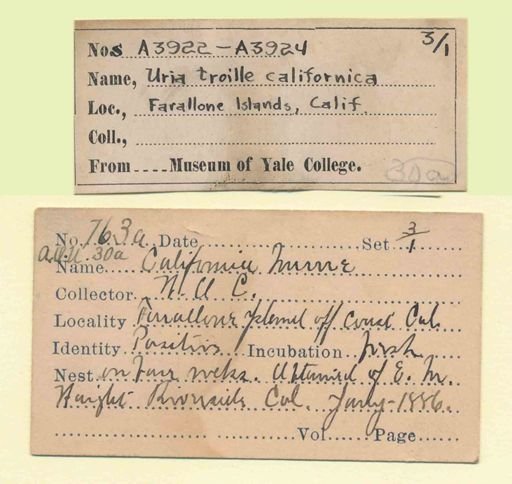 Nos A3922-A3924 3/1
Name, Uria troille californica
Loc., Farallone Islands, Calif.
Coll.,
From Museum of Yale College.
30a
No. 763a Date Set 3/1
a.o.u. 30a
Name California Murre
Collector
Locality Farallone Island off coast Cal
Identity Positive Incubation fresh
Nest on bare rocks. Obtained of E. M.
Haight Riverside Cal. Jany-1886.
Vol Page